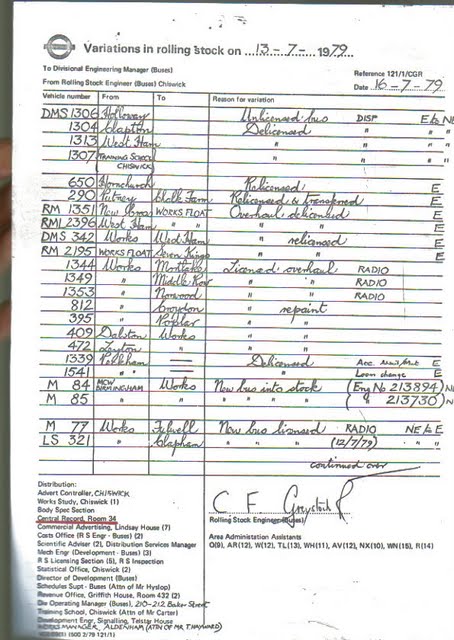 Variations in rolling stock on 13-7-1979
To Divisional Engineering Manager (Buses)
Reference 121/1/CGR
From Rolling Stock Engineer (Buses) Chiswick
Date 16-7-79
Vehicle number From To Reason for variation
DMS 1306 Holloway Unlicensed bus DISP E & NE
1304 Clapton Delicensed " " "
1313 West Ham " " " "
1307 TRAINING SCHOOL CHISWICK " " " "
650 Hornchurch Relicensed E
290 Putney Chalk Farm Relicensed & transferred E
RM 1351 New Cross WORKS FLOAT Overhaul delicensed E
RML 2396 West Ham " " " " E
DMS 342 Works West Ham " relicensed E
RM 2195 WORKS FLOAT Seven Kings " " E
1344 Works Mortlake Licensed overhaul RADIO
1349 " Middle Row " " RADIO
1353 " Norwood " " RADIO
812 " Croydon " repaint
395 " Poplar " "
409 Dalston Works "
472 Leyton " "
1339 Peckham Delicensed E
1541 " " Loan change E
M 84 MCW BIRMINGHAM Works New bus into stock (Eng No 213894) NE
M 85 " " " " " " ( " 213730) NE
M 77 Works Fulwell New bus licensed RADIO NE & E
LS 321 " Clapham " " " (12/7/79) " "
continued over
Distribution:
Advert Controller, CHISWICK
Works Study, Chiswick (1)
Body Spec Section
Central Record, Room 34
Commercial Advertising, Lindsay House (7)
Costs Office (R S Engr - Buses) (2)
Scientific Adviser (2), Distribution Services Manager
Mech Engr (Development - Buses) (3)
R S Licensing Section (5), R S Inspection
Statistical Office, Chiswick (2)
Director of Development (Buses)
Schedules Supt - Buses (Attn of Mr Hyslop)
Revenue Office, Griffith House, Room 432 (2)
Div Operating Manager (Buses), 210-212 Baker Street
Training School, Chiswick (Attn of Mr Carter)
Development Engr, Signalling, Telstar House
WORKS MANAGER, ALDENHAM (ATTN OF MR THAYWARD)
C F
Rolling Stock Engineer (Buses)
Area Administration Assistants
O(9), AR(12), W(12), TL(13), WH(11), AV(12), NX(10), WN(15), R(14)